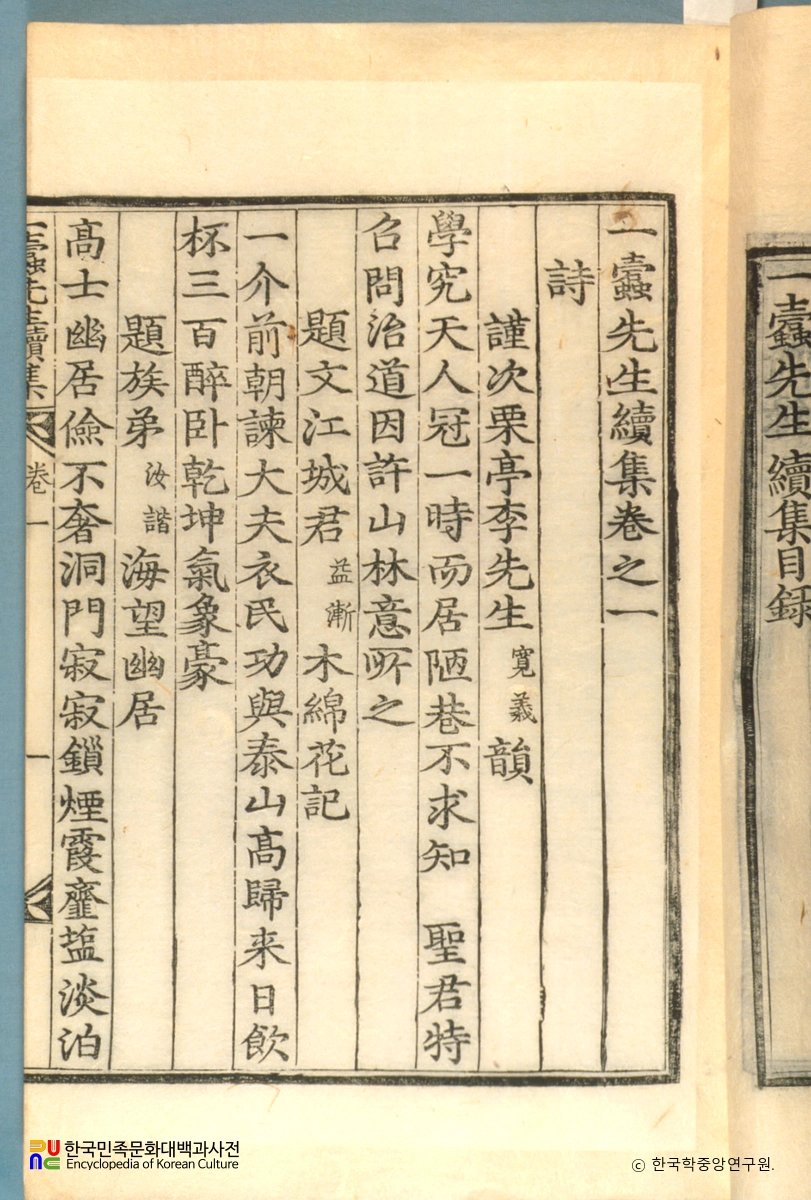 一蠹先生續集目録
一蠹先生續集卷之一
詩
謹次栗亭李先生寬義韻
學究天人冠一時而居陋巷不求知 聖君特
召問治道因許山林意所之
題文江城君益漸木綿花記
一介前朝諫大夫衣民功與泰山高歸来日飲
杯三百醉卧乾坤氣象豪
題族弟汝諧海望幽居
高士幽居儉不奢洞門寂寂鎖煙霞虀塩淡泊
一蠹先生續集 卷一 一
한국민족문화대백과사전
Encyclopedia of Korean Culture
ⓒ 한국학중앙연구원.